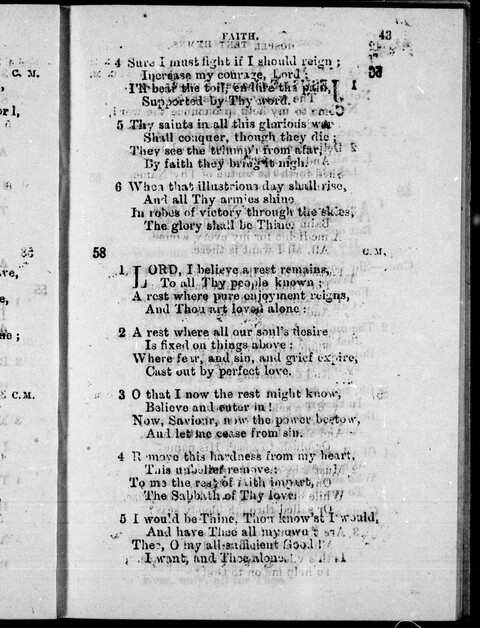 FAITH. 43
4 Sure I must fight if I should reign;
Increase my courage, Lord;
I'll bear the toil, endure the pain,
Supported by Thy word.
5 Thy saints in all this glorious war
Shall conquer, though they die;
They see the triumph from afar,
By faith they bring it nigh.
6 When that illustrious day shall rise,
And all Thy armies shine
In robes of victory through the skies,
The glory shall be Thine.
58 C.M.
1 LORD, I believe a rest remains,
To all Thy people known;
A rest where pure enjoyment reigns,
And Thou art loved alone:
2 A rest where all our soul's desire
Is fixed on things above;
Where fear, and sin, and grief expire,
Cast out by perfect love.
3 O that I now the rest might know,
Believe and enter in!
Now, Saviour, now the power bestow,
And let me cease from sin.
4 Remove this hardness from my heart,
This unbelief remove:
To me the rest of faith impart,
The Sabbath of Thy love.
5 I would be Thine, Thou know'st I would,
And have Thee all my own:
Thee, O my all-sufficient Good!
I want, and Thee alone.
C.M.
C.M.